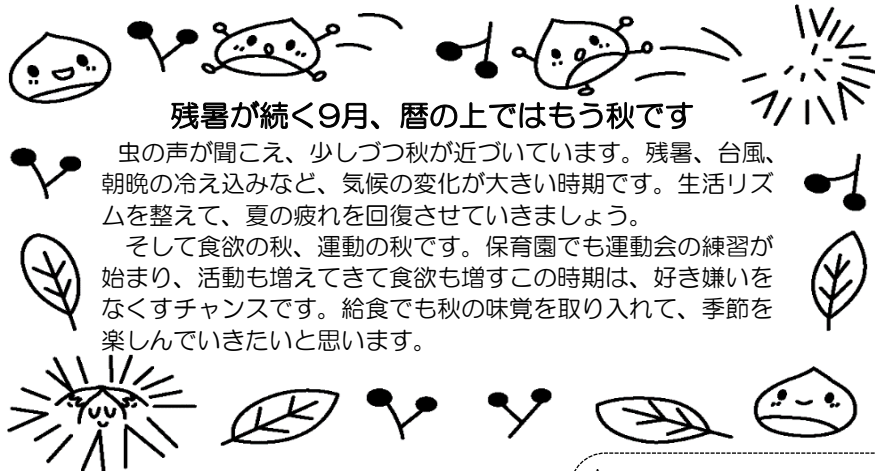 残暑が続く9月、暦の上ではもう秋です
虫の声が聞こえ、少しづつ秋が近づいています。残暑、台風、
朝晩の冷え込みなど、気候の変化が大きい時期です。生活リズ
ムを整えて、夏の疲れを回復させていきましょう。
そして食欲の秋、運動の秋です。保育園でも運動会の練習が
始まり、活動も増えてきて食欲も増すこの時期は、好き嫌いを
なくすチャンスです。給食でも秋の味覚を取り入れて、季節を
楽しんでいきたいと思います。